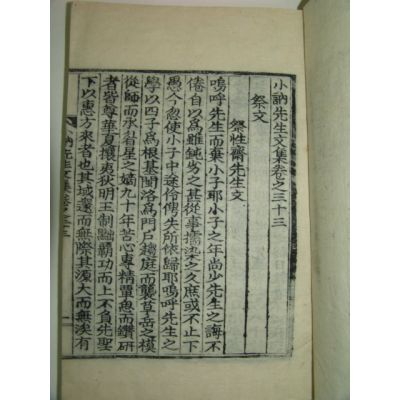 小訥先生文集卷之三十三
祭文
祭性齋先生文
嗚呼先生而棄小子耶小子之年尚少先生之誨不
倦自以爲雖鈍劣之甚從事擩染之久庶或不止下
愚今忽使小子中途伶俜失所依歸耶嗚呼先生之
學以四子爲根基閩洛爲門戶趨庭而襲草岳之模
從師而承台星之嫡九十年苦心專精覃思而鑽研
者皆尊華夏攘夷狄明王制黜覇功而上不負先聖
下以惠方來者也其域邃而無際其源大而無涘有
小訥先生文集卷之三十三 一